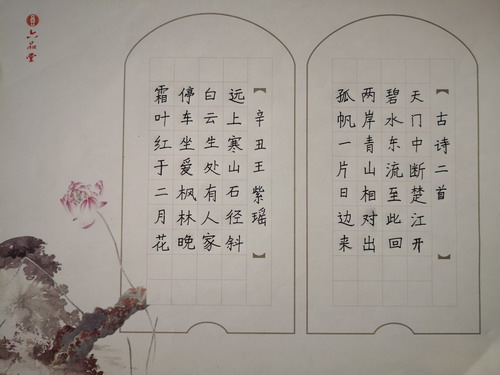 【古诗二首】
天门中断楚江开
碧水东流至此回
两岸青山相对出
孤帆一片日边来
【辛丑王紫瑶】
远上寒山石径斜
白云生处有人家
停车坐爱枫林晚
霜叶红于二月花
六品堂